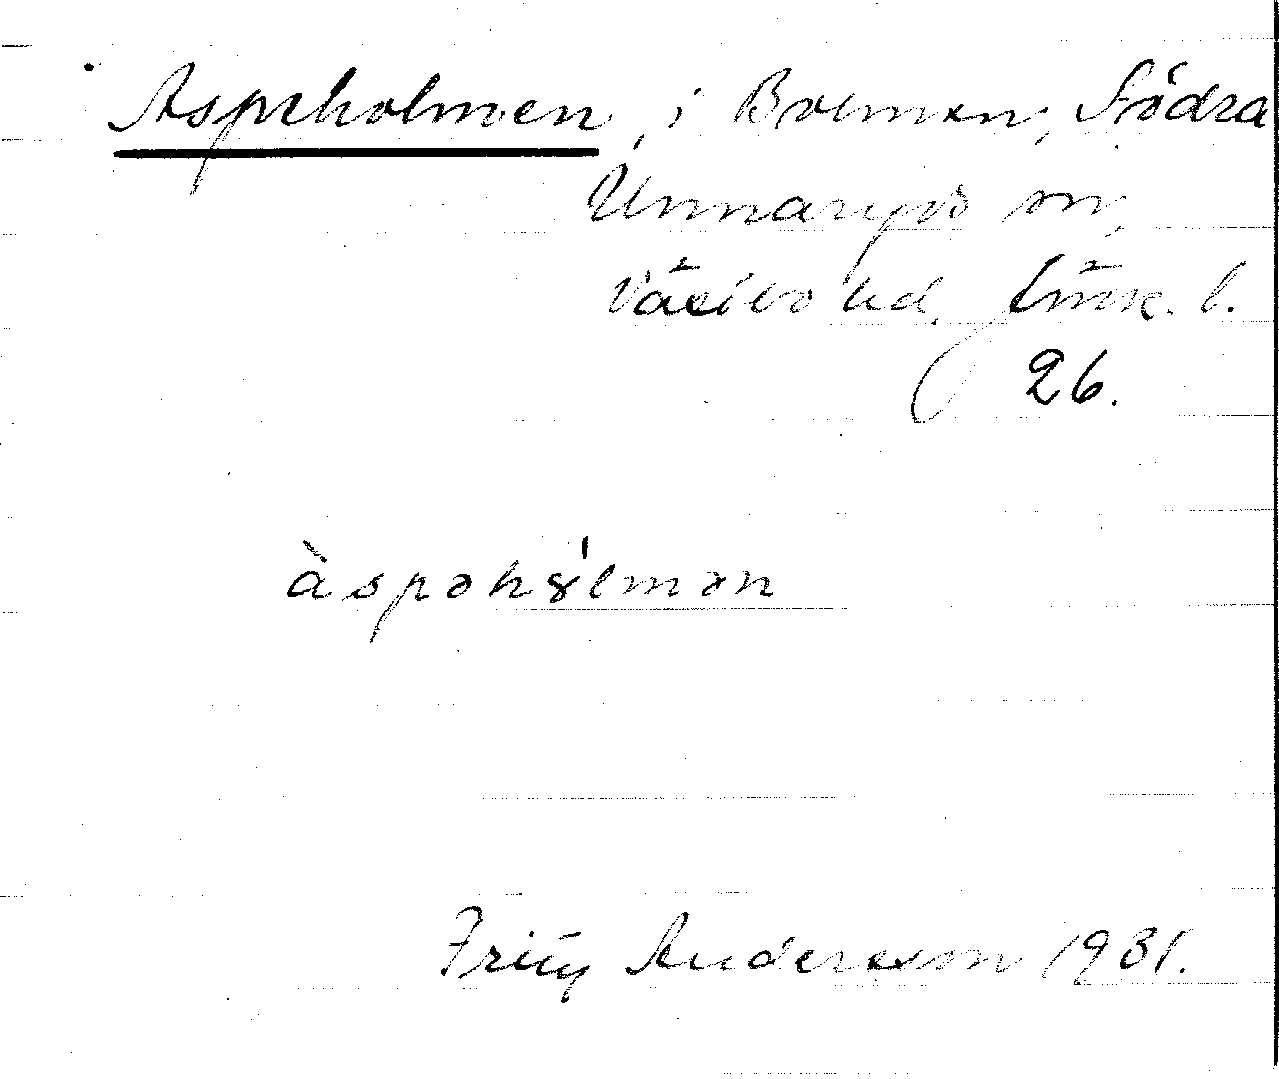 Aspeholmen, i Bolmen, Södra
Unnaryds sn,
Västbo hd, Jönk. l.
26.
àspəhɔ́lmən
Fritz Andersson 1931.